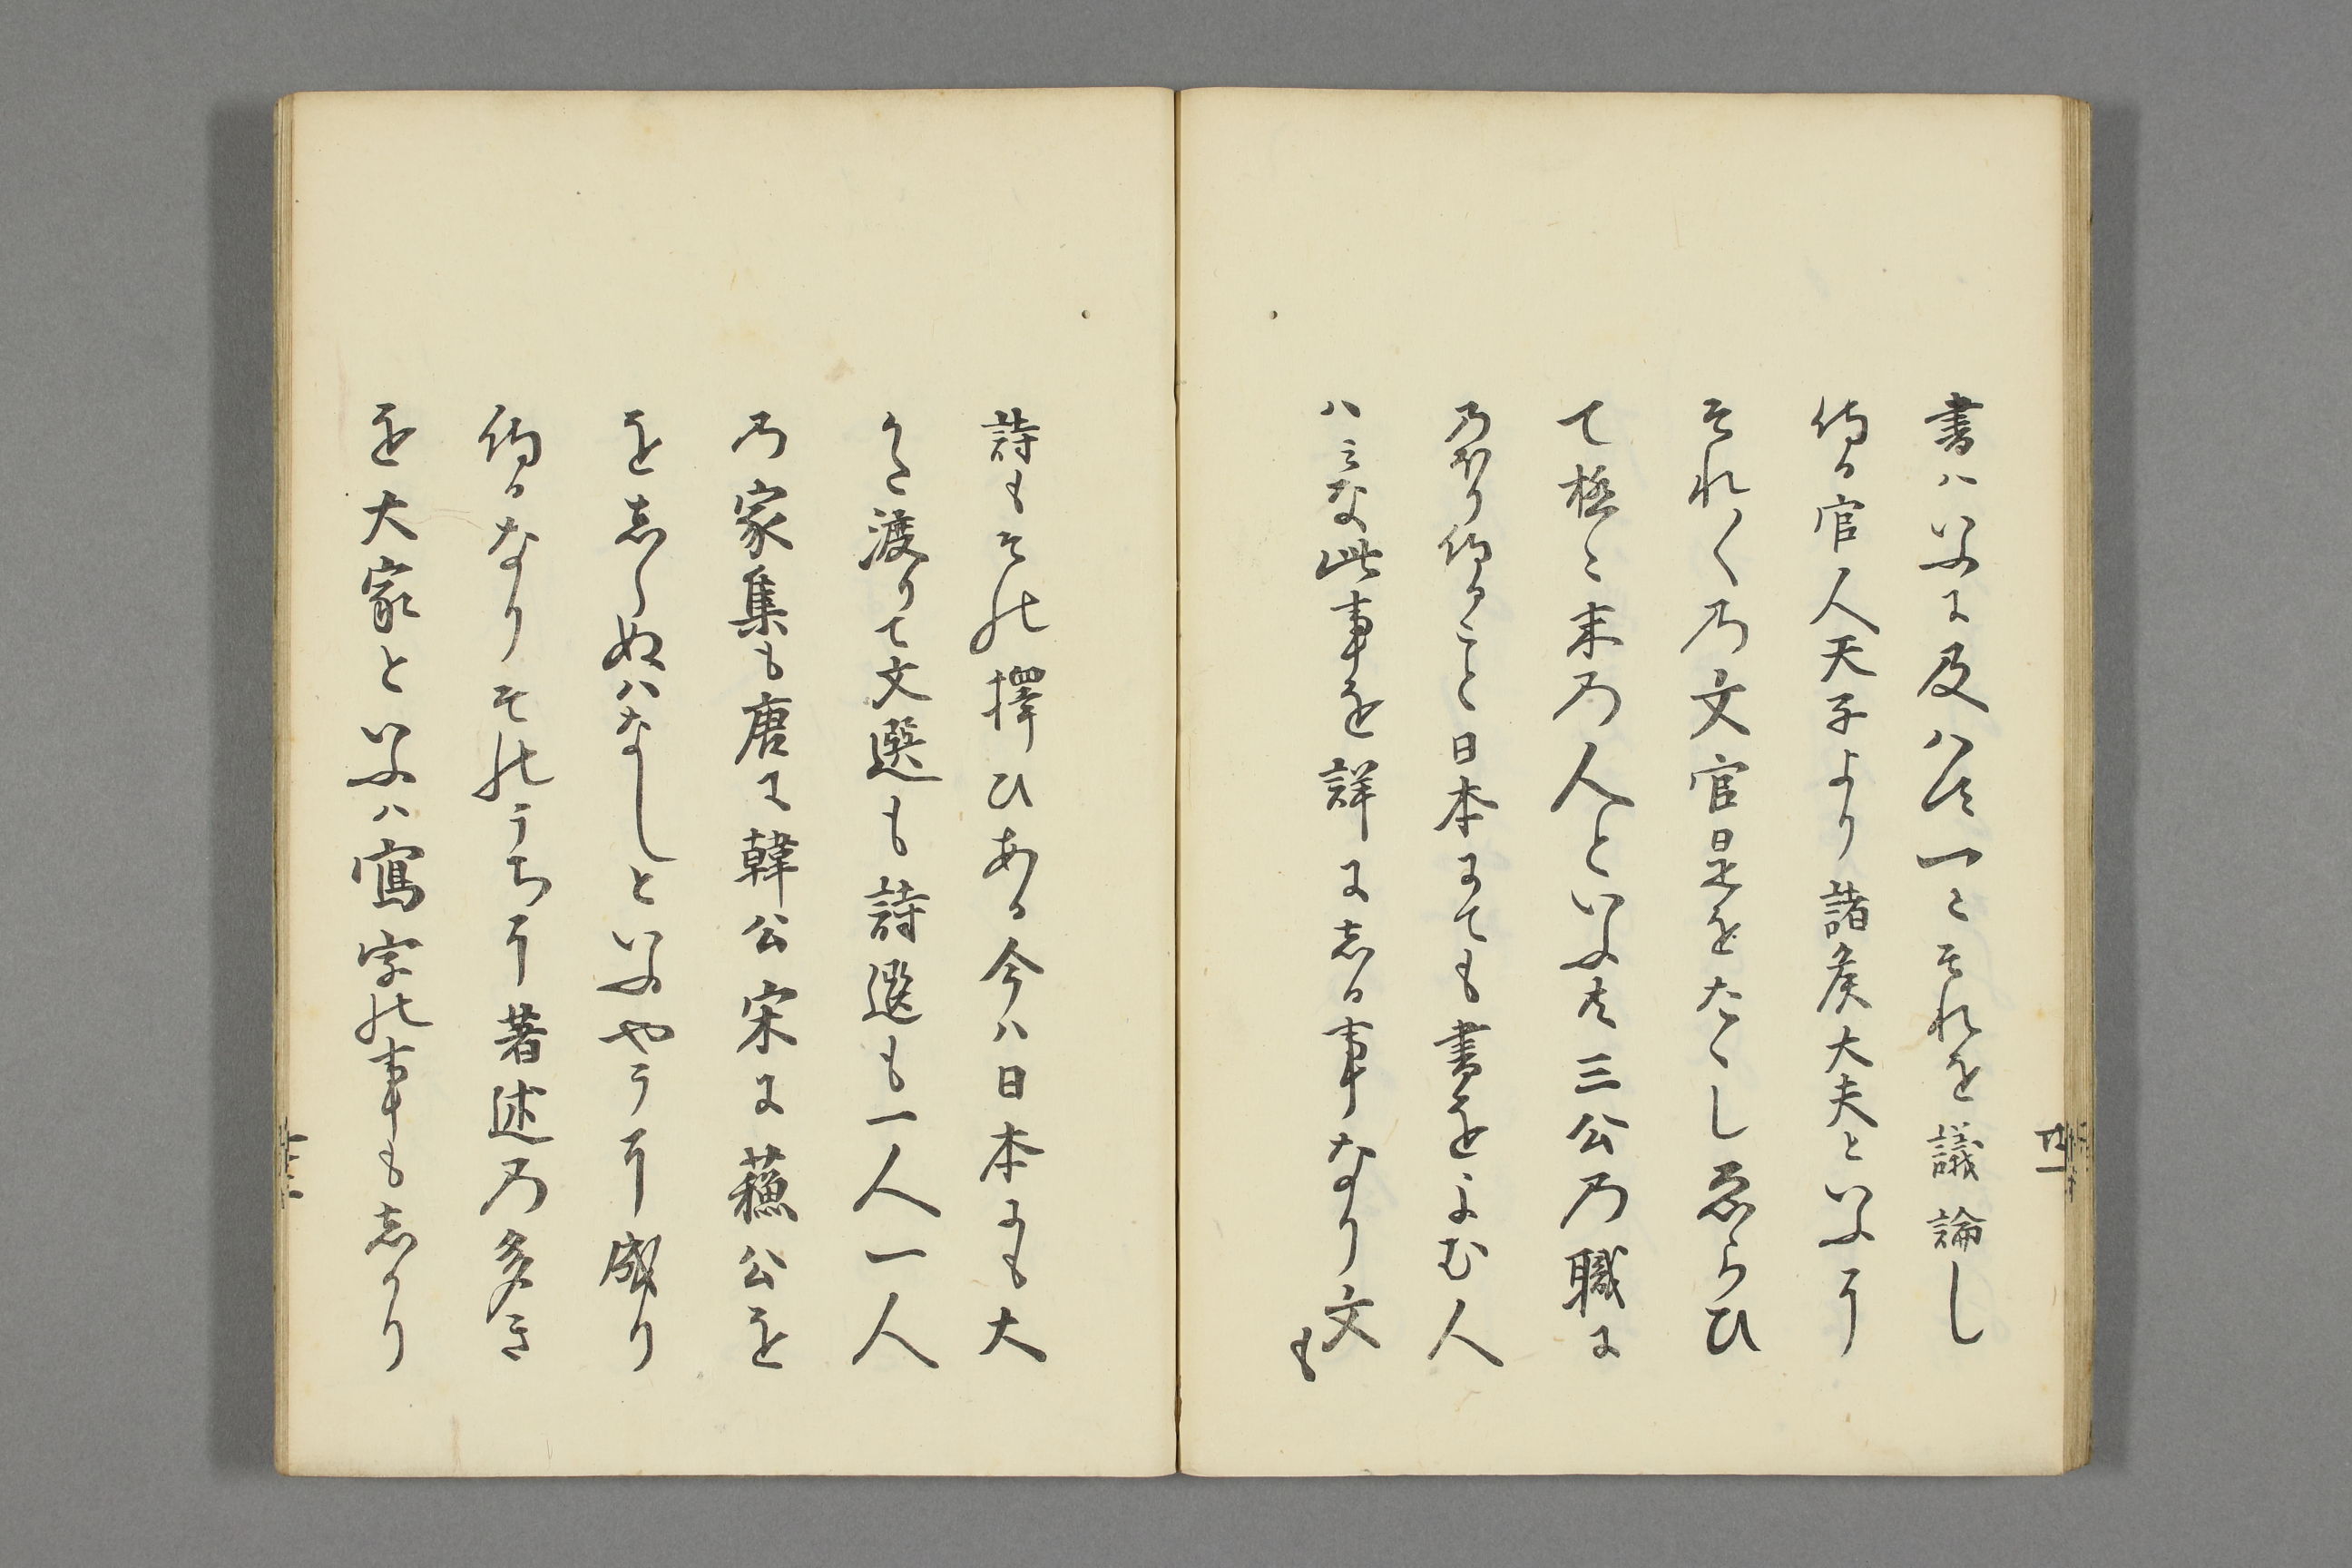 書ハいふに及ハす一〻それを議論し
侍る官人天子より諸矦大夫といふまて
それ〱乃文官是をたゝしゑらひ
て極〻末乃人といふ共三公乃職に
乃ほり侍ること日本にても書をよむ人
ハミな此事を詳にしる事なり文も
詩もその擇ひある今ハ日本にも大
かた渡りて文選も詩選も一人一人
乃家集も唐に韓公宋に蘓公を
をしらぬハなしといふやうに成り
侍るなりそのうちに著述乃多き
を大家といふハ寫字の事もしかり